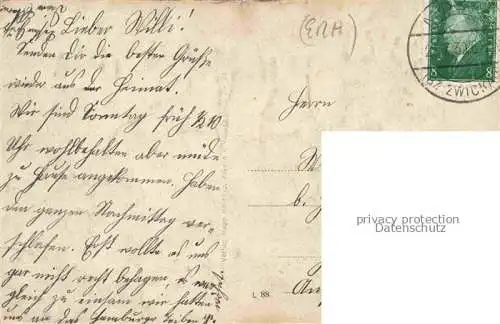 Lieber Willi!
Senden Dir die besten Grüße
wieder aus der Heimat.
Wir sind Sonntag früh ½10
Uhr wohlbehalten aber müde
zu Hause angekommen. Haben
den ganzen Nachmittag ver-
schlafen. Erst wollte es uns
gar nicht recht behagen, es war
gleich zu einsam wir hatten
uns an das Hamburger
Herrn
W
b.
L 88.
An
8
ZWICK
privacy protection
Datenschutz